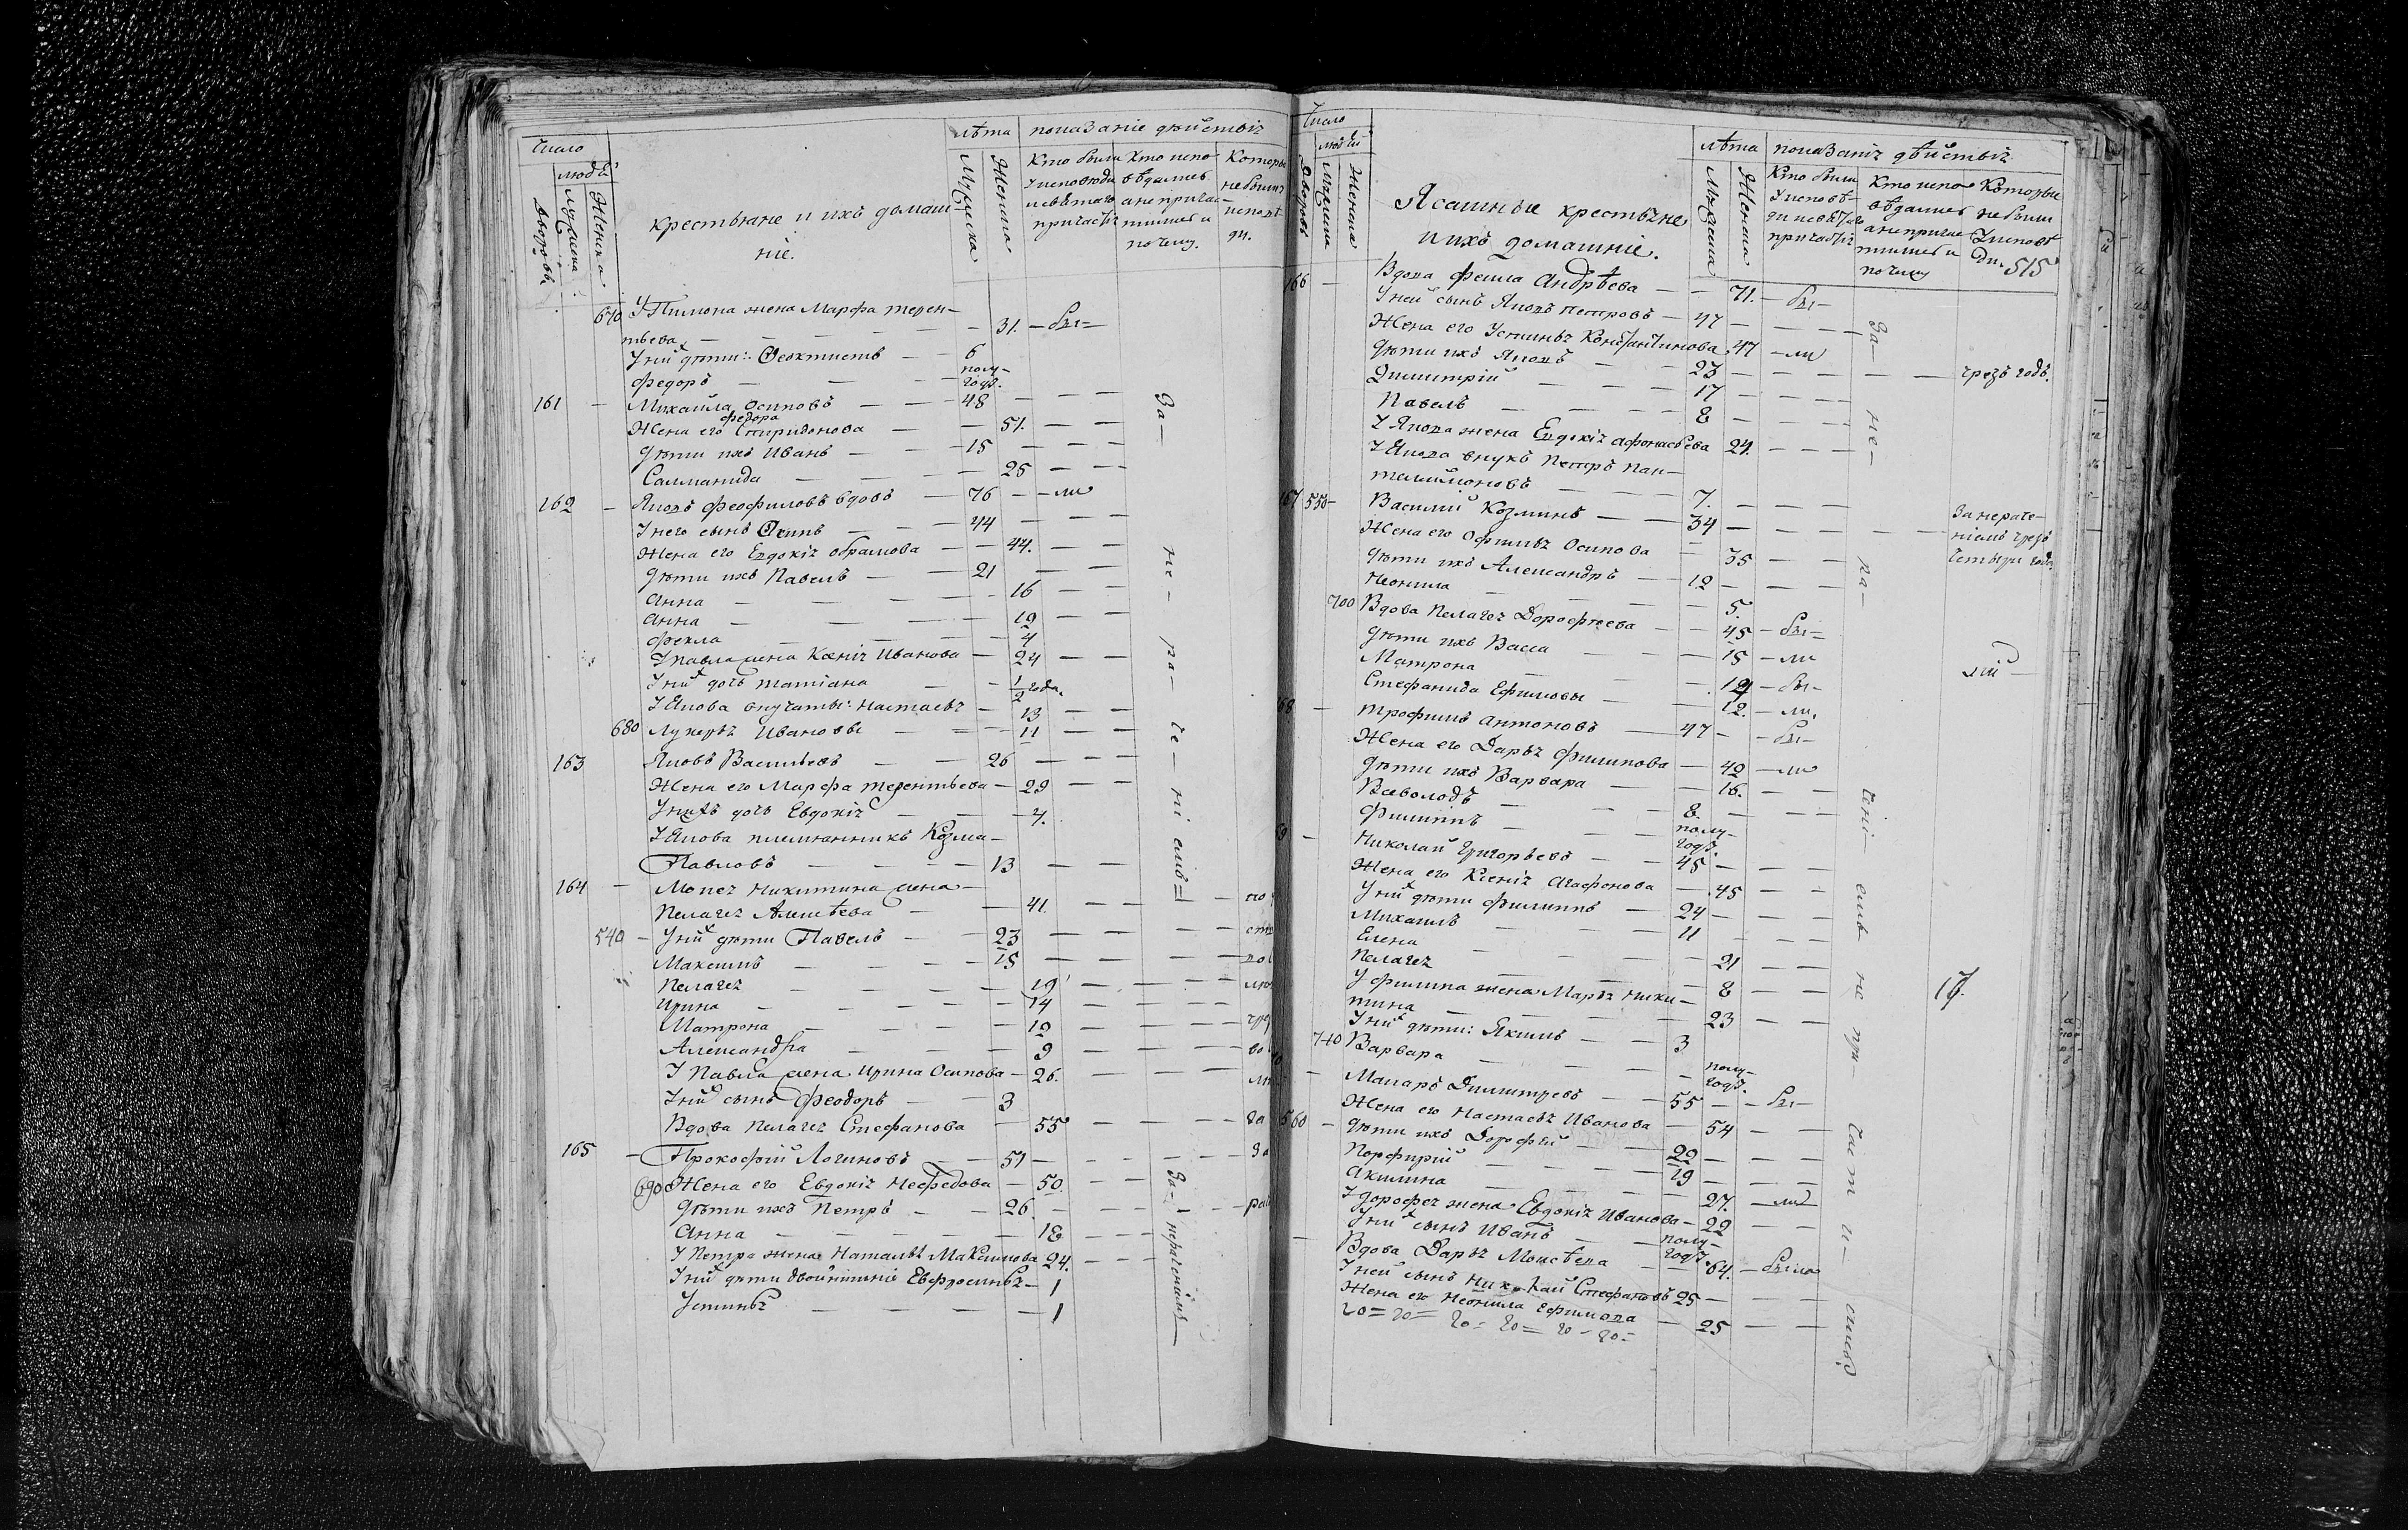 Число
людей
Дворовъ
Мужеска
Женска
крестьяне и ихъ домаш-
ніе.
лѣта
Мужеска
Женска
показаніе дѣйствія
Кто были
у исповѣди
и святаго
причастія
Кто испо-
вѣдались
а не причас-
тились и
почему.
Которые
не были у
исповѣ-
ди.
670 У Пимона жена Марфа терен-
тьева — — — 31. — бы —
У них дѣти: Феоктистъ — — 6
Федоръ — — — полу-
года.
161 — Михайла Осиповъ — — 48 — — —
федора
Жена его Спиридонова — — 51. — —
дѣти ихъ Иванъ — — 15 — — —
Саломанида — — — 25 — — —
162 — Яковъ Феофиловъ вдовъ — 76 — — ли
У него сынъ Осипъ — — 44 — — —
Жена его Евдокія Абрамова — — 44. — —
дѣти ихъ Павелъ — — 21 — — —
Анна — — — — 16 — —
Анна — — — — 12 — —
Фекла — — — — 4
У Павла жена Ксенія Иванова — 24 — —
У них дочь Татіана — — 1/2 года.
У Якова внучаты: Настасья — 13 — —
680 Лукерья Ивановы — — — 11 — —
163 Яковъ Васильевъ — — 26 — — —
Жена его Марфа Терентьева — 29 — —
У нихъ дочь Евдокія — — 4.
У Якова племянникъ Козма —
Павловъ — — — — 13 — —
164 — Мопея Никитина жена —
Пелагея Алексѣева — — 41. — — —
540 — У них дѣти Павелъ — — 23 — — —
Максимъ — — — — 15 — — —
Пелагея — — — — 19 — — —
Ирина — — — — 14 — — —
Матрона — — — — 12 — — —
Александра — — — 9 — — —
У Павла жена Ирина Осипова — 26. — — —
У них сынъ Феодоръ — — 3
Вдова Пелагея Стефанова — 55 — — —
165 — Прокофій Логиновъ — — 51 — — —
690 Жена его Евдокія Нефедова — 50. — —
дѣти ихъ Петръ — — 26. — — —
Анна — — — — 18 — —
У Петра жена Наталья Максимова 24. — —
У них дѣти двойнишніе Евфросинья — 1
Устинья — — — — 1
За — не — ра — че — ні емъ —
За — нераченіемъ —
Число
людей
Дворовъ
Мужеска
Женска
Ясашные крестьяне
и ихъ домашніе.
лѣта
Мужеска
Женска
показанія дѣйствія
Кто были
у исповѣ-
ди и святаго
причастія
Кто испо-
вѣдались
а не причас-
тились и
почему
Которые
не были
у исповѣ
ди.
515
166 — Вдова Фекла Андрѣева — — 71. — бы —
У ней сынъ Яковъ Петровъ — 47 — — —
Жена его Устинья Константинова 47 — ли
дѣти ихъ Яковъ — — 23 — — — — чрезъ годъ.
Димитрій — — — 17 — — —
Павелъ — — — — 8 — — —
У Якова жена Евдокія Афонасьева 24. — — —
У Якова внукъ Петръ Пан-
телимоновъ — — — 7. — — —
167 550 — Василий Козминъ — — 34 — — — — За нераче-
ніемъ чрезъ
четыри года.
Жена его Офимья Осипова — 35 — —
дѣти ихъ Александръ — — 12 — — —
Неонила — — — — 5.
700 Вдова Пелагея Дорофѣева — — 45 — бы —
дѣти ихъ Васса — — — 15 — ли
Матрона — — — — 14 — бы —
Стефанида Ефимовы — — 12. — ли.
168 — Трофимъ Антоновъ — 47 — — бы —
Жена его Дарья Филипова — 42 — ли
дѣти ихъ Варвара — — — 16. — —
Всеволодъ — — — 8. — — —
Филиппъ — — — полу-
года.
169 — Николай Григорьевъ — — 45 — — —
Жена его Ксенія Агафонова — 45 — —
У них дѣти Филиппъ — — 24 — — —
Михаилъ — — — — 11 — — —
Елена — — — — 21 — —
Пелагея — — — — 8 — —
У Филипа жена Марья Ники —
тина — — — — 23 — —
У них дѣти: Якимъ — — 3
710 Варвара — — — — полу-
года.
— Макаръ Димитревъ — — 55 — — бы —
Жена его Настасья Иванова — 54 — —
560 — дѣти ихъ Дорофей — — 22 — — —
Порфирій — — — 19 — — —
Акилина — — — — 27. — ли
У Дорофея жена Евдокія Иванова — 22 — —
У них сынъ Иванъ — — полу-
года.
— Вдова Дарья Моисѣева — — 64. — были
У ней сынъ Николай Стефановъ 25 — — —
Жена его Неонила Ефимова — 25 — —
20 = 20 = 20 = 20 = 20 = 20 =
За — не — ра — чені — емъ не при- част и — лись
17.